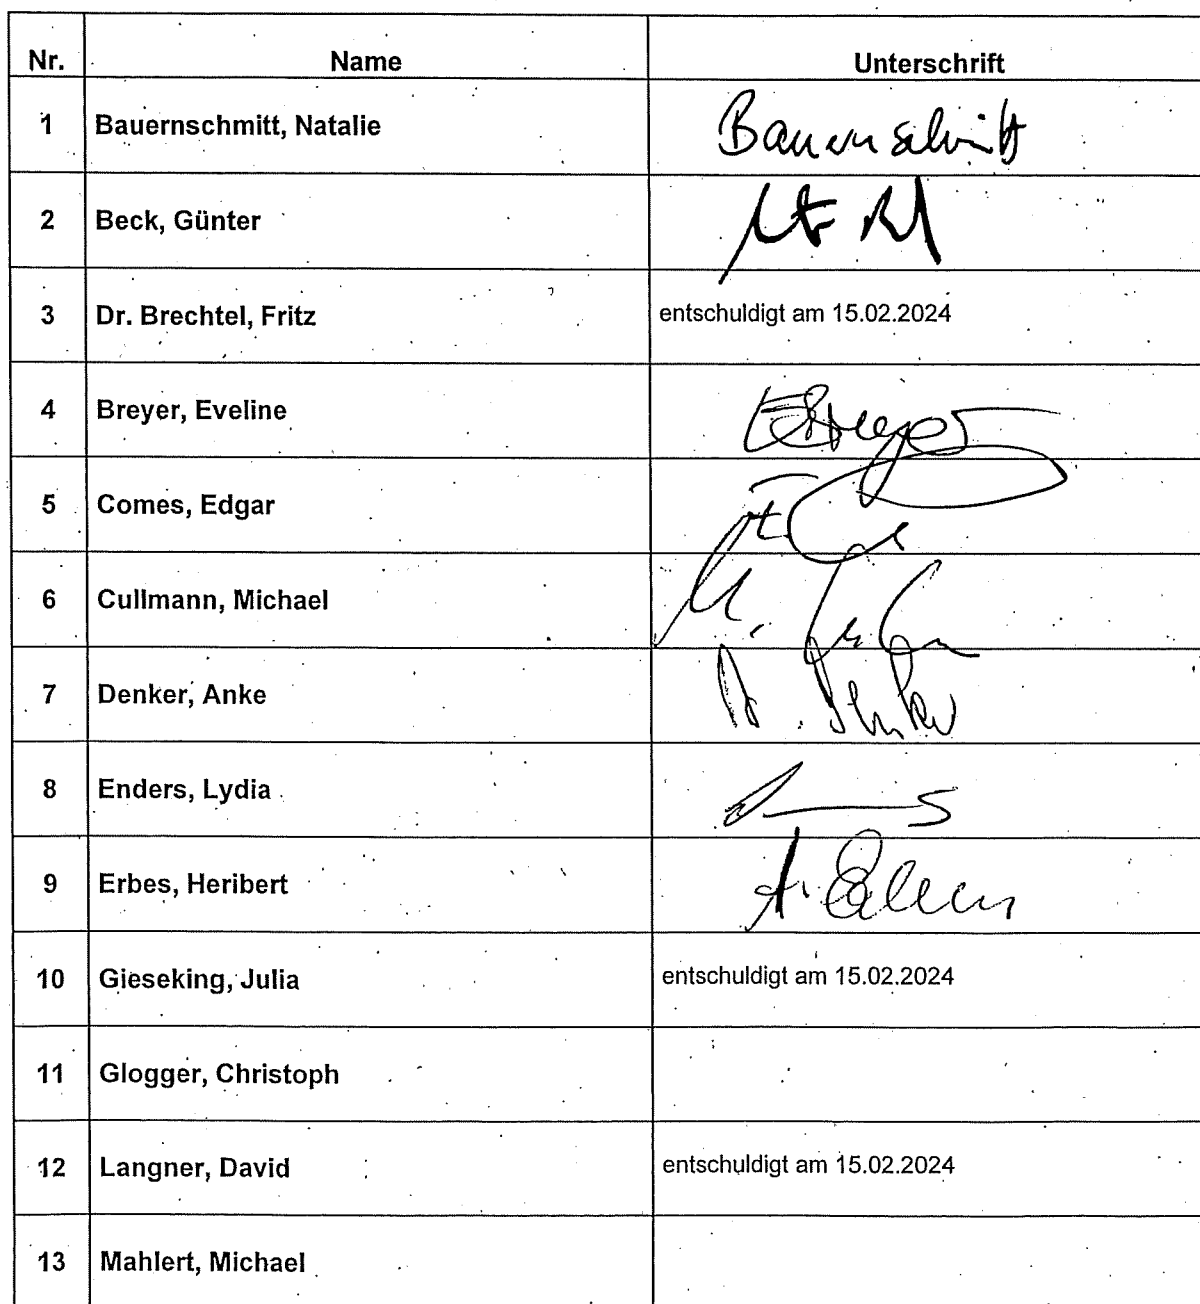 Nr. Name Unterschrift
1 Bauernschmitt, Natalie Bauernschmitt
2 Beck, Günter
3 Dr. Brechtel, Fritz entschuldigt am 15.02.2024
4 Breyer, Eveline EBreyer
5 Comes, Edgar
6 Cullmann, Michael
7 Denker, Anke A. Denker
8 Enders, Lydia
9 Erbes, Heribert
10 Gieseking, Julia entschuldigt am 15.02.2024
11 Glogger, Christoph
12 Langner, David entschuldigt am 15.02.2024
13 Mahlert, Michael